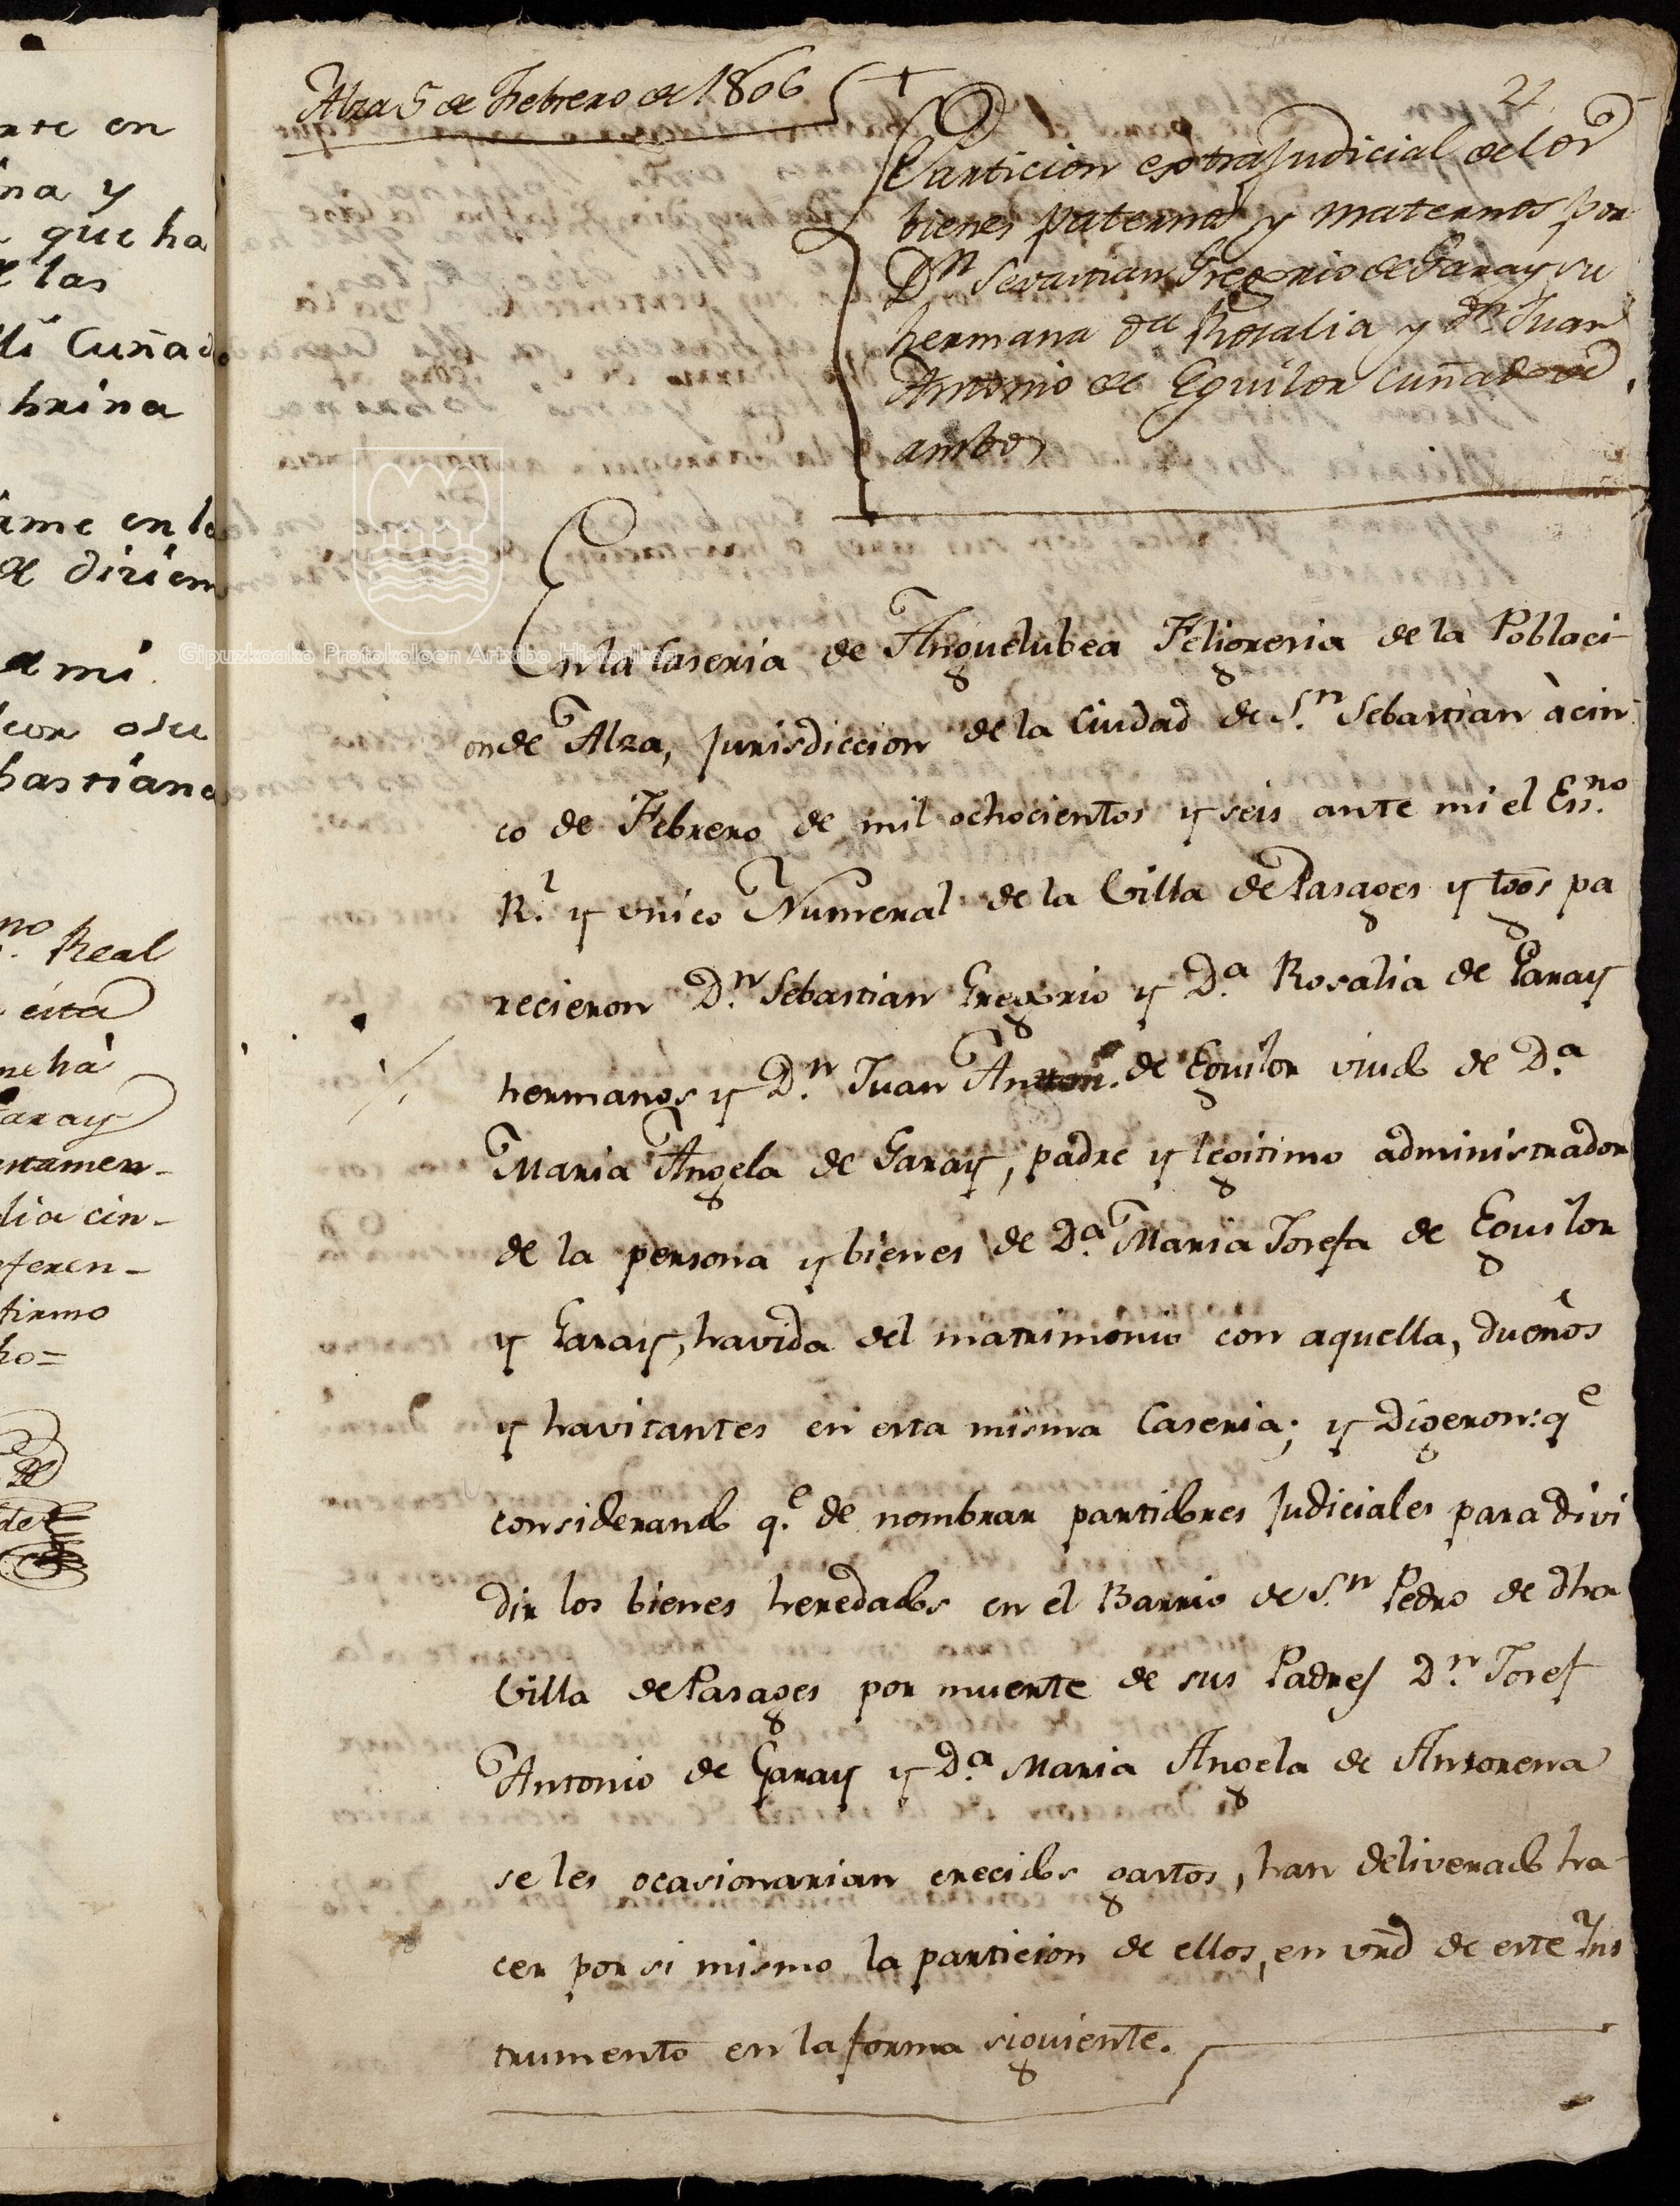 nte en
ina y
que ha
e las
lli Cuñado
brina
ame en la
de diriem
a mi
hastiana
no. Real
esta
me ha
Garay
ntamen-
dia cin-
eferen-
firmo
ho=
Alza 5 de Febrero de 1806
21
Particion extrajudicial de los
bienes paternos y maternos por
Dn. Sevastian Gregorio de Garay su
hermana Da. Rosalia y Dn. Juan
Antonio de Eguilor Cuñado de
ambos
Gipuzkoako Protokoloen Artxibo Historikoa
En la Caseria de Anguelubea Feligresia de la Poblaci-
on de Alza, Jurisdiccion de la Ciudad de Sn. Sebastian à cin-
co de Febrero de mil ochocientos y seis ante mi el Ess.no
R.l y vnico Numeral de la Villa de Pasages y tgos pa
recieron Dn. Sebastian Gregorio y Da. Rosalia de Garay
hermanos y Dn. Juan Anton. de Eguilor viudo de Da.
Maria Angela de Garay, padre y legitimo administrador
de la persona y bienes de Da. Maria Josefa de Eguilor
y Garay, havida del matrimonio con aquella, dueños
y havitantes en esta misma Caseria; y Digeron: qe
considerando qe. de nombrar partidores Judiciales para divi
dir los bienes heredados en el Barrio de Sn. Pedro de dha
Villa de Pasages por muerte de sus Padres Dn. Josef
Antonio de Garay y Da. Maria Angela de Ansorena
se les ocasionarian crecidos gastos, han deliverado ha-
cer por si mismo la particion de ellos, en vrd de este Ins
trumento en la forma siguiente.